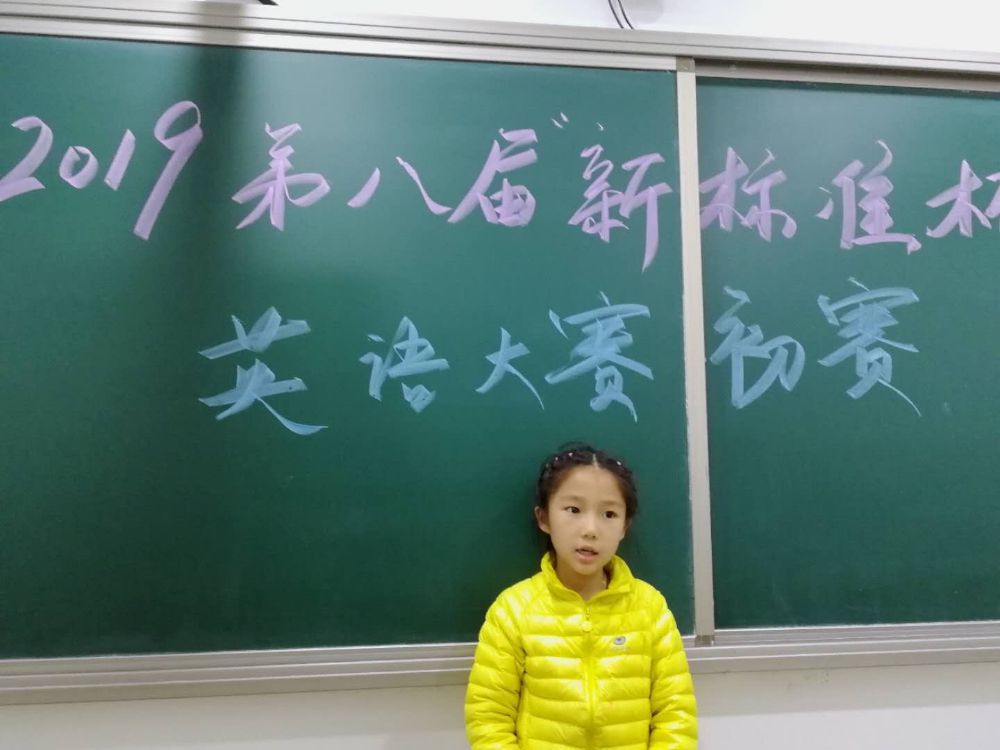 2019第八届"新标准杯
英语大赛初赛